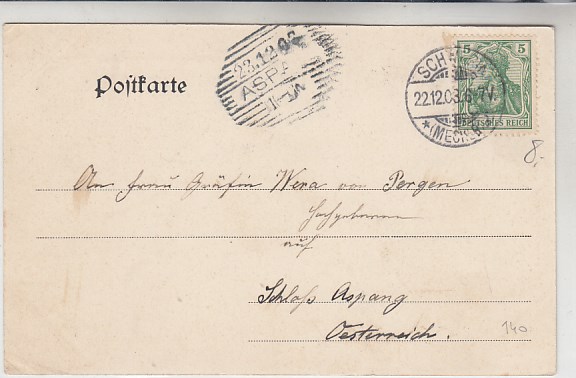 Postkarte
23.12.03
ASPA
5 5
DEUTSCHES REICH
22.12.03. 6-7V.
*(MECKL
8.-
An Frau Gräfin Wera von Pergen
Hochgeboren
auf
Schloß Aspang
Oesterreich.
140